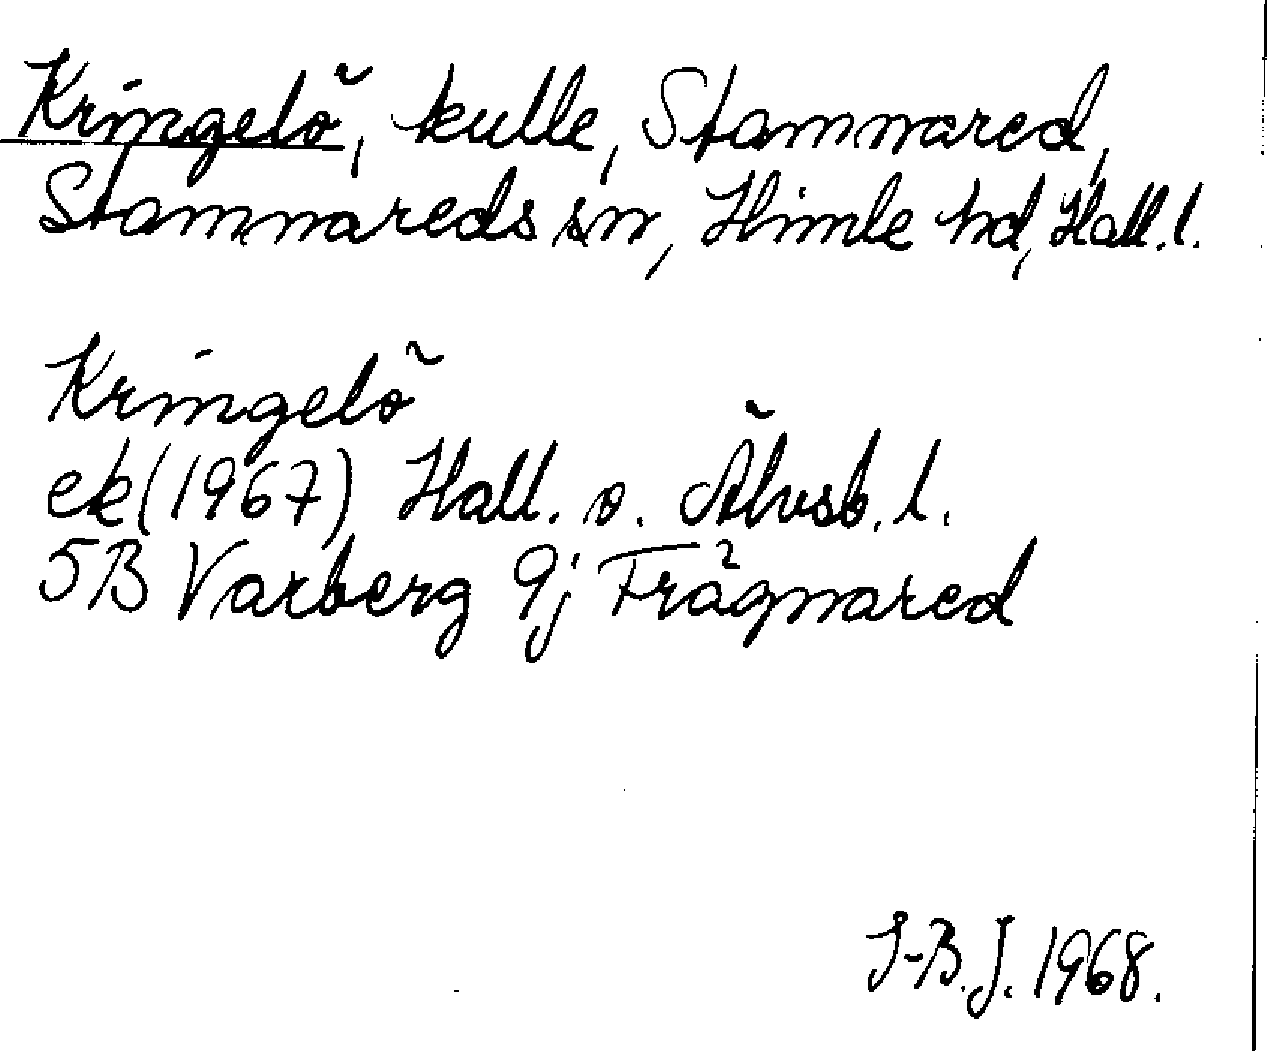 Kringelö, kulle, Stamnared,
Stamnareds sn, Himle hd, Hall. l.
Kringelö
ek (1967) Hall. o. Älvsb. l.
5B Varberg 9j Frägnared
I-B. J. 1968.